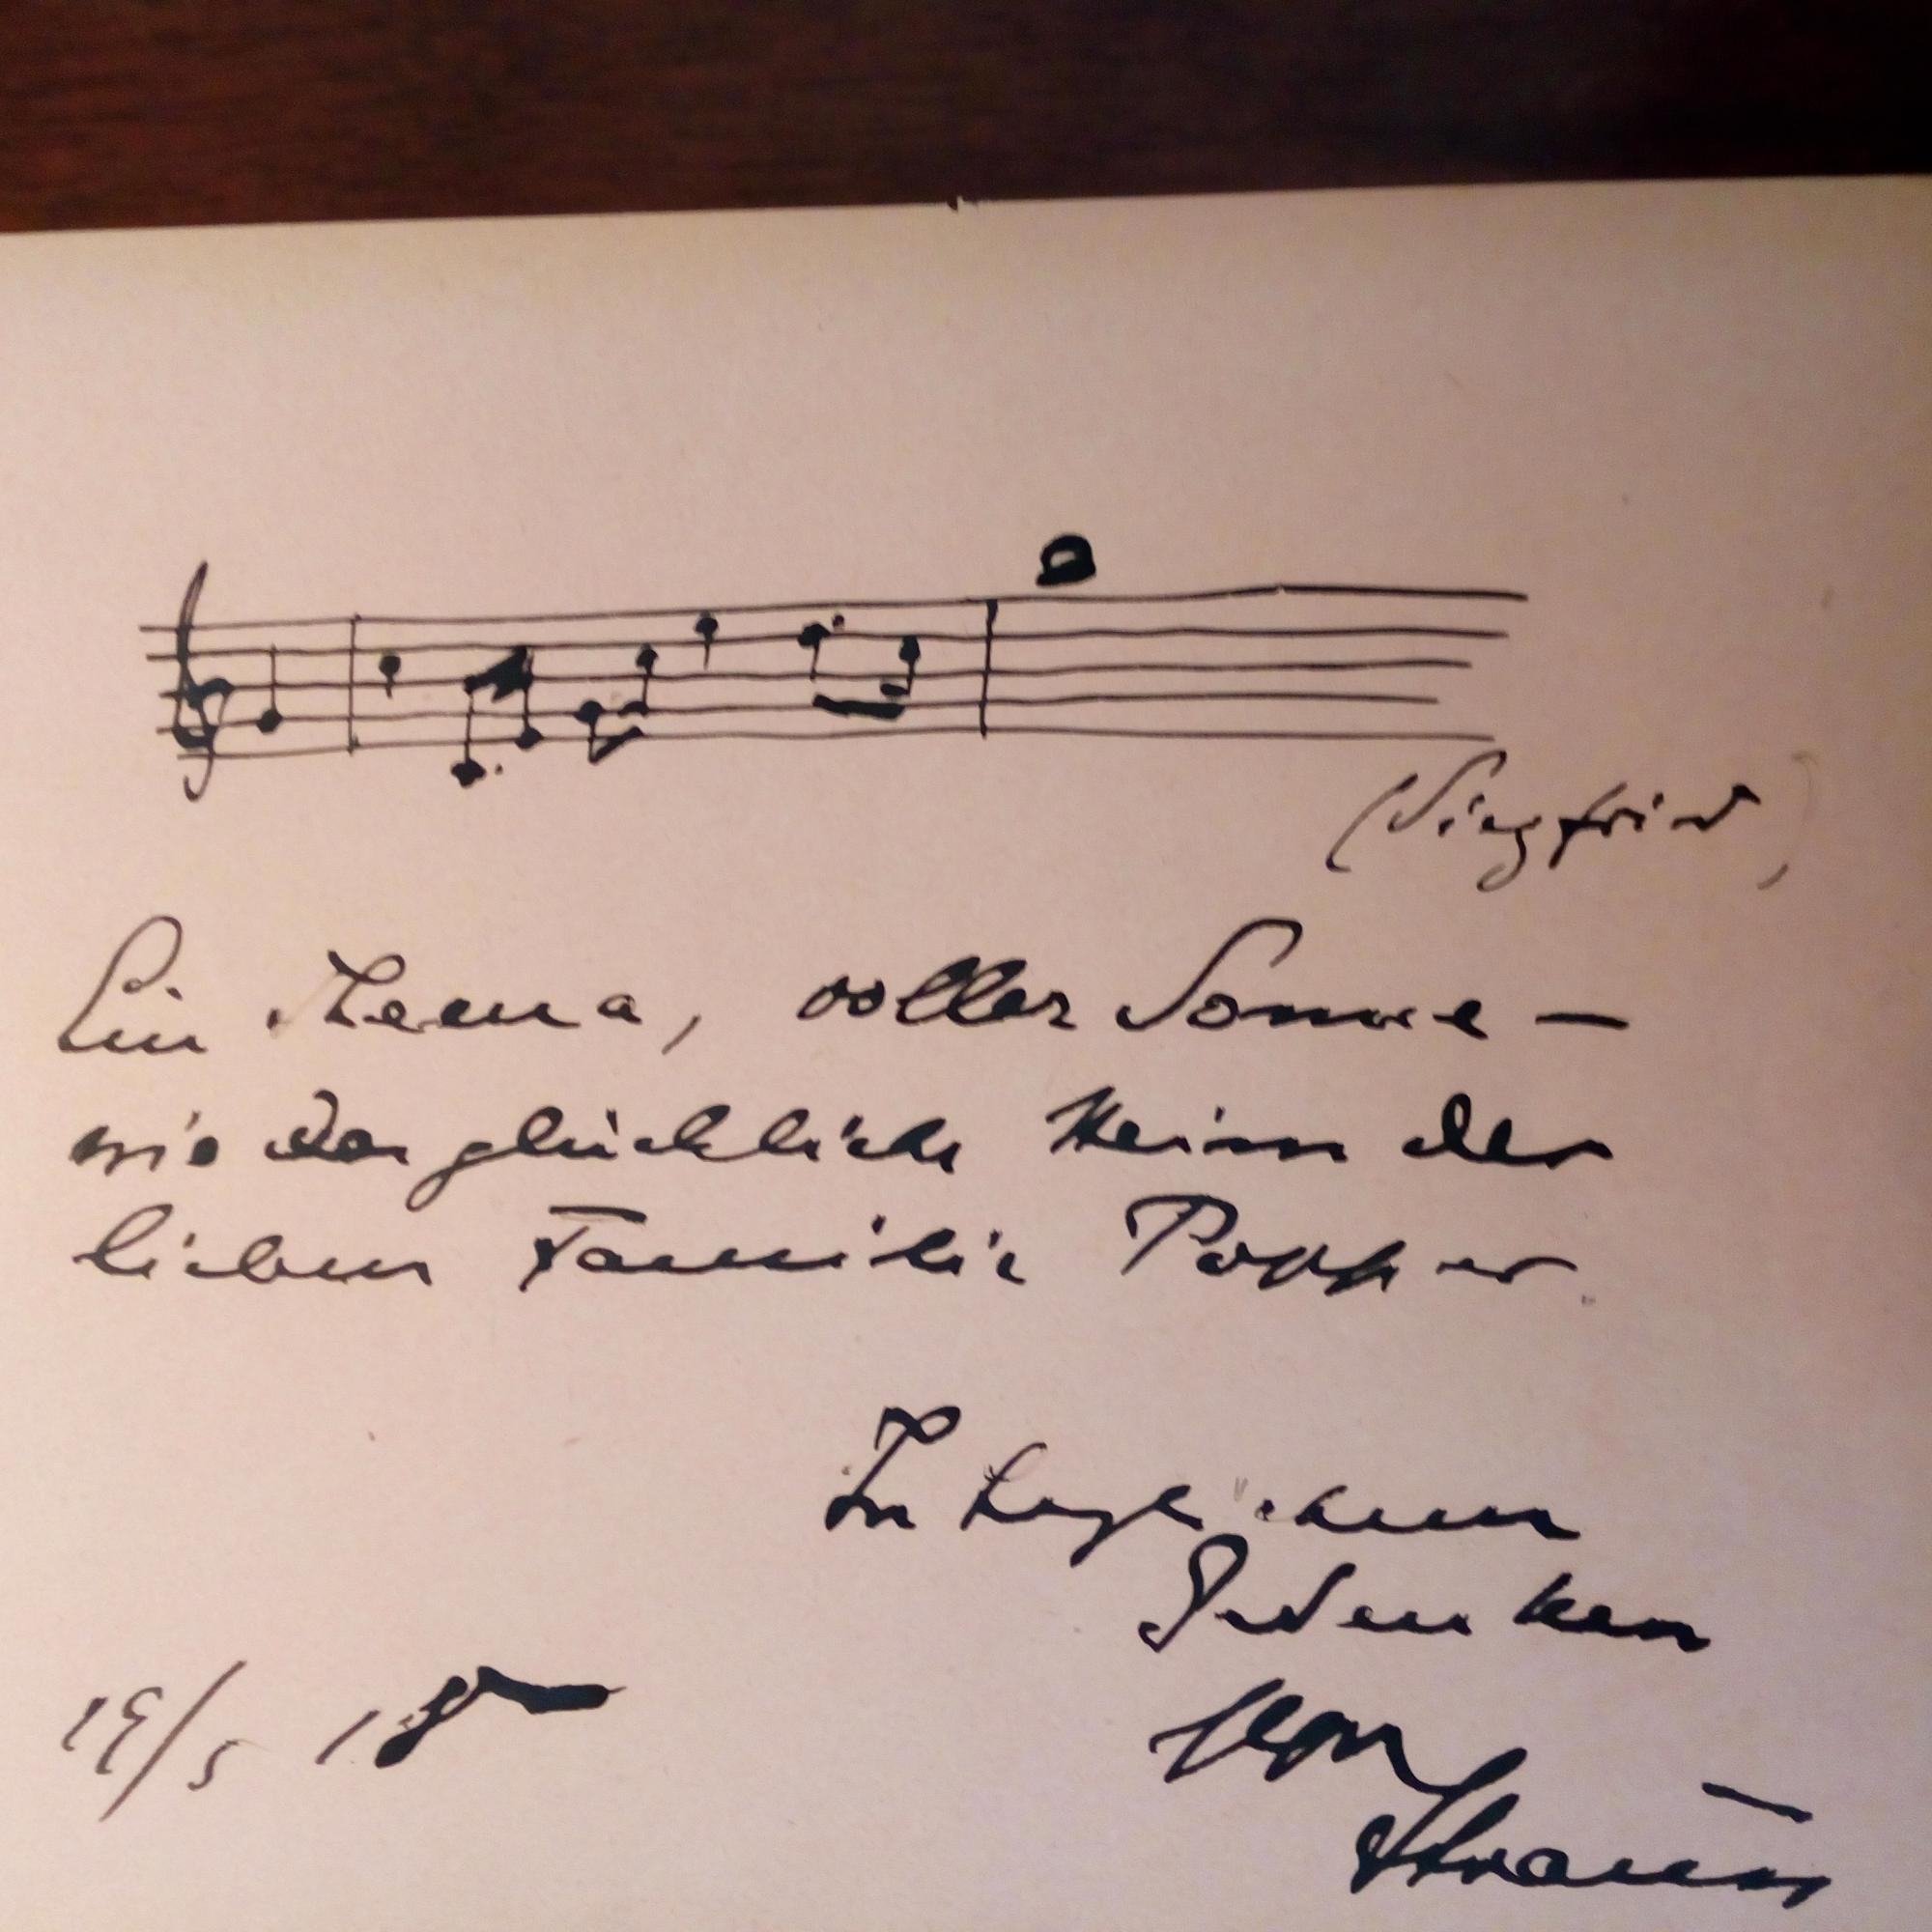 (Siegfried)
Ein Thema, voller Sonne —
wie das glückliche Heim der
lieben Familie Popper.
In
Gedenken
Strauss
19/5 18